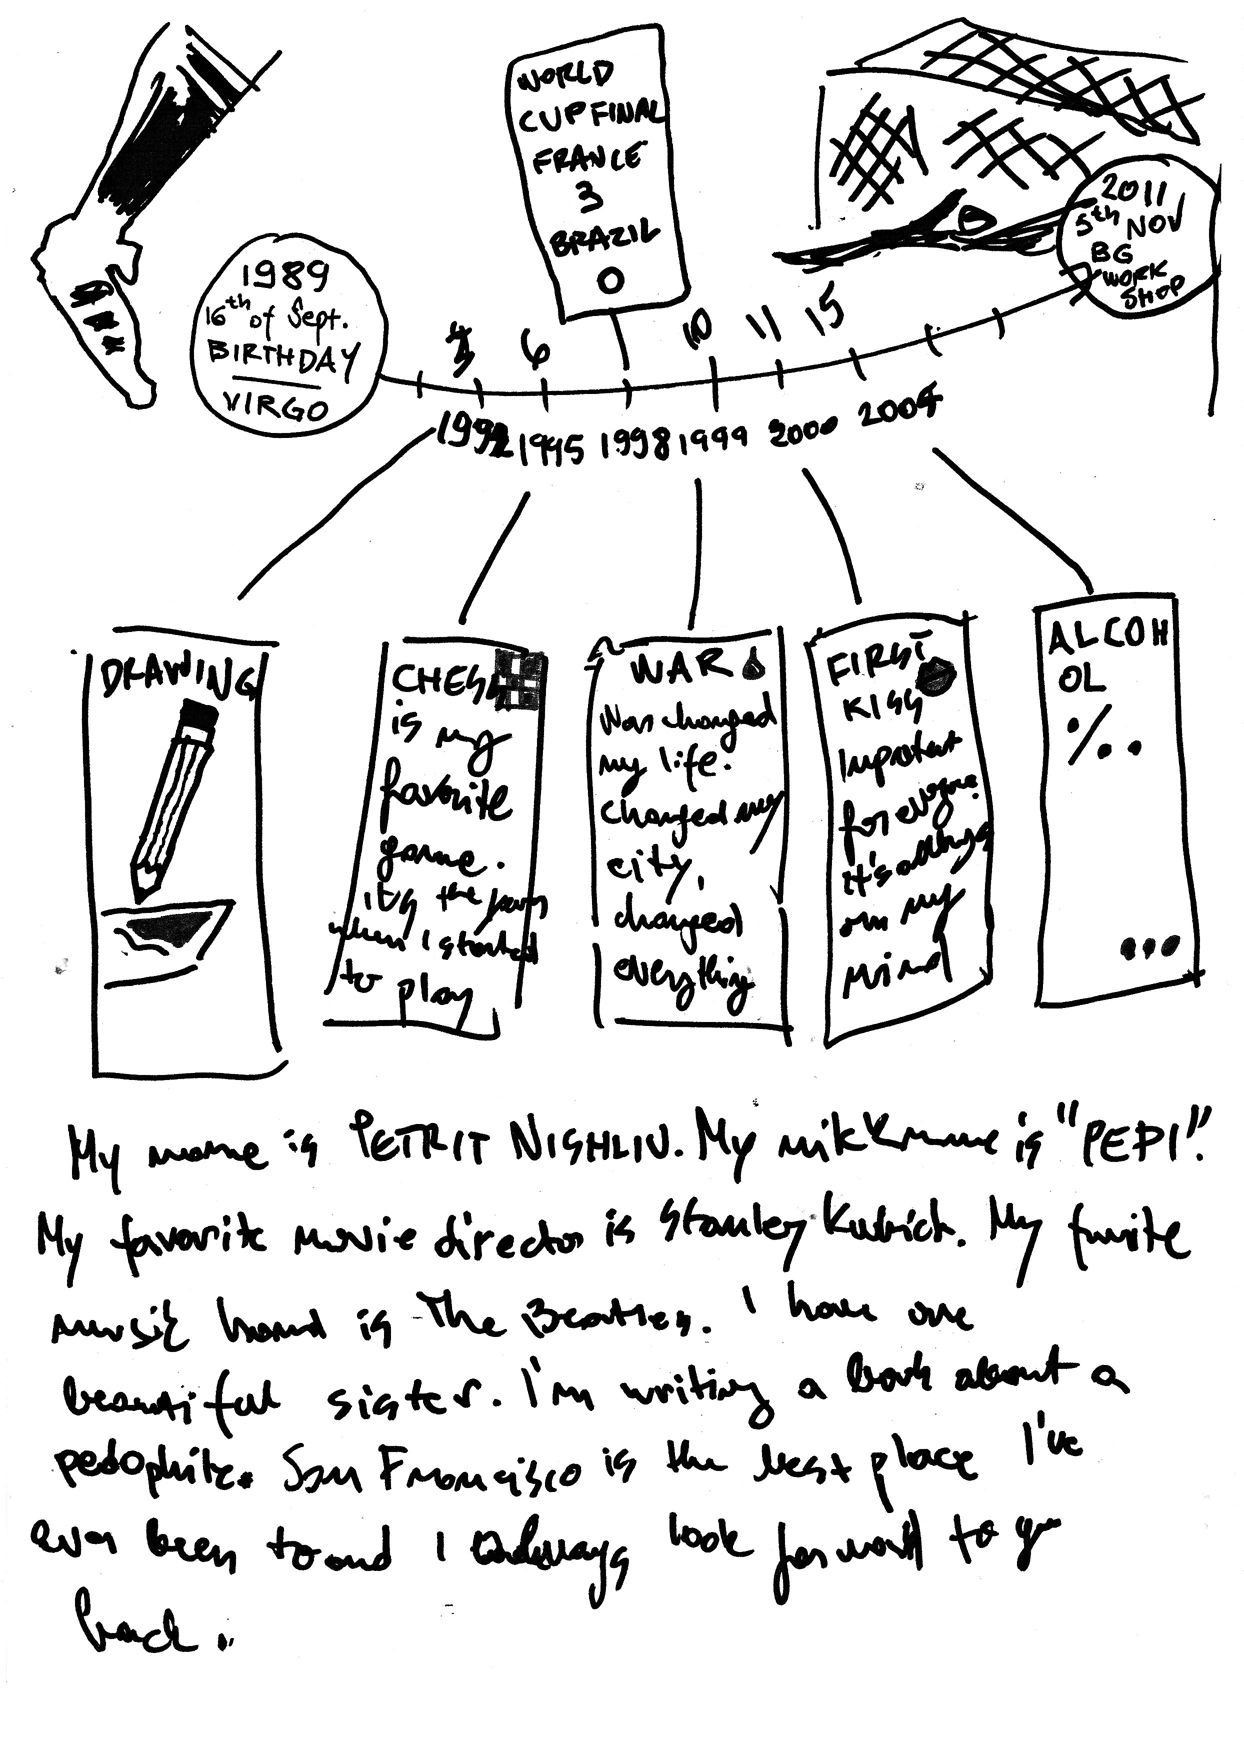 WORLD
CUP FINAL
FRANCE
3
BRAZIL
0
2011
5th NOV
BG
WORK
SHOP
1989
16th of Sept.
BIRTHDAY
VIRGO
6
10
11
15
1992
1995
1998
1999
2000
2004
DRAWING
CHESS
is my
favorite
game.
its the year
when I started
to play
WAR
War changed
my life.
changed my
city,
changed
everything
FIRST
KISS
Improtant
for evryone.
it's allways
on my
mind
ALCOH
OL
%..
...
My name is PETRIT NISHLIU. My nikkname is "PEPI".
My favorite movie director is Stanley Kubick. My favorite
music band is The Beatles. I have one
beautiful sister. I'm writing a book about a
pedophile. San Francisco is the best place I've
ever been to and I allways look forward to go
back..